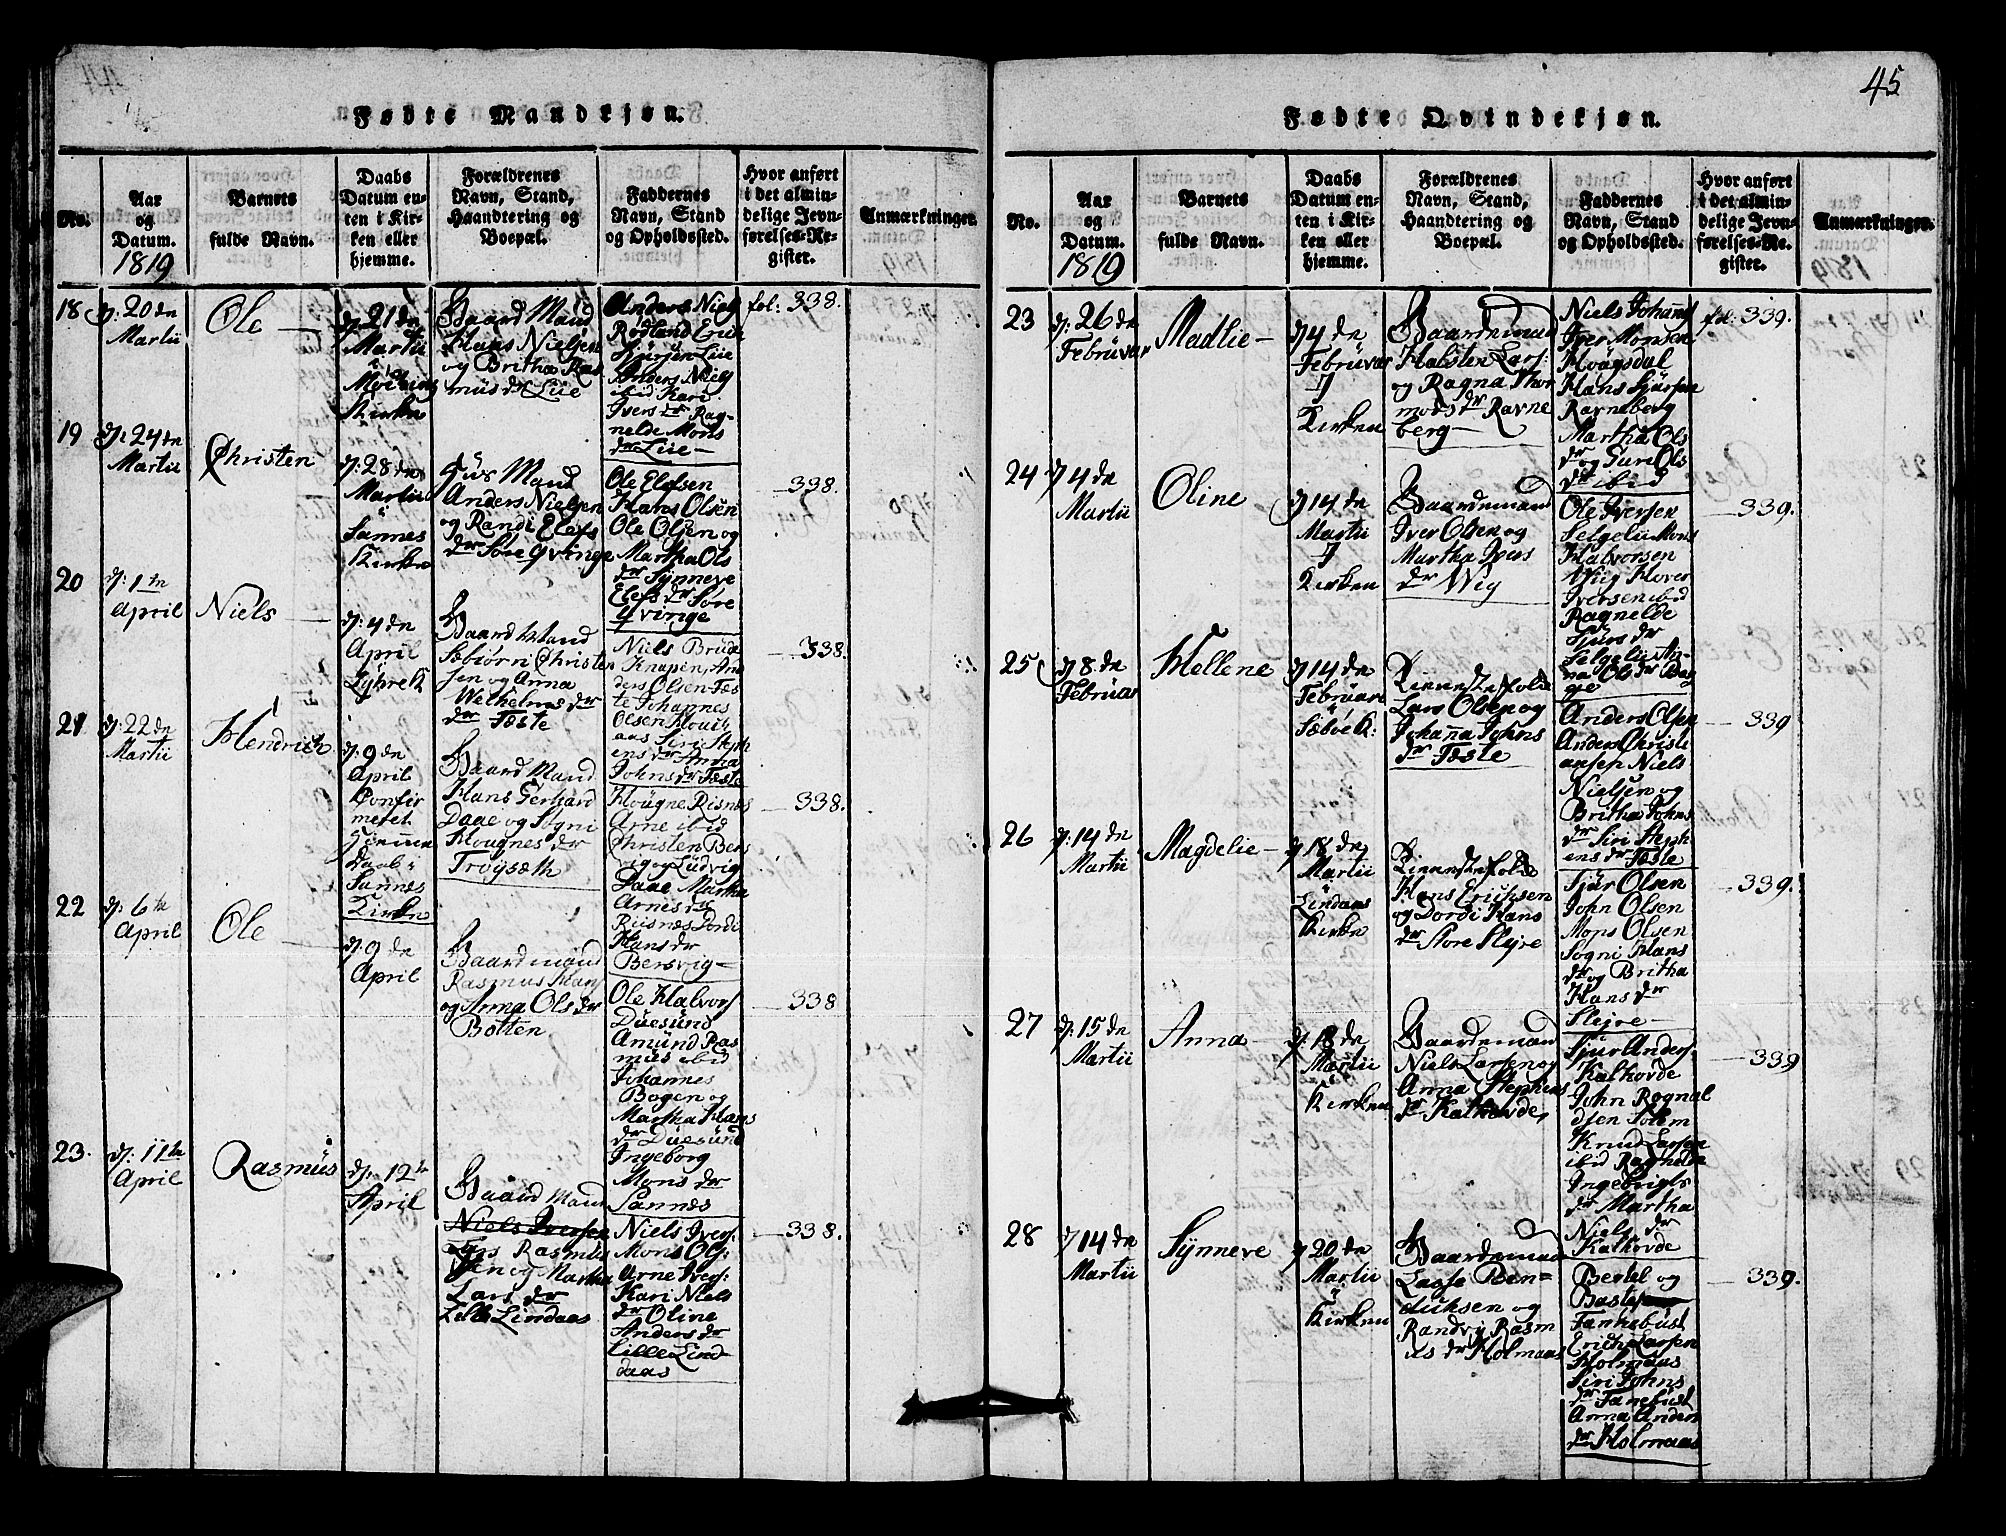 45
Fødte Mandkjøn.
No.
Aar
og
Datum.
1819
Barnets
fulde Navn.
Daabs
Datum en-
ten i Kir-
ken eller
hjemme.
Forældrenes
Navn, Stand,
Haandtering og
Boepæl.
Faddernes
Navn, Stand
og Opholdssted.
Hvor anført
i det almin-
delige Jevn-
førelses-Re-
gister.
Anmærkninger.
18
d: 20 de
Martii
Ole
d: 21 de
Martii
i
Kirken
Gaard Mand
Hans Nielsen
og Britha Ras
mus dr Lie
Anders Niels
Rødland Erik
Siursen Liie
Anders Niels
ibid Kari
Ivers dr Rag-
nelde Mons
dr Liie
fol: 338.
19
d: 24 de
Martii
Christen
d: 28 de
Martii
i
Sannes
Kirken
Huus Mand
Anders Nielsen
og Randi Elefs
dr Søre Qvinge
Ole Elefsen
Hans Olsen
Ole Olsen og
Martha Ols
dr Synneve
Elefs dr Søre
Qvinge
338.
20
d: 1 te
April
Niels
d: 4 de
April
Lyhrek
Gaard Mand
Sæbiørn Christen
sen og Anna
Wethelms dr
Fæste
Niels Brude
Knapen, An
ders Olsen Fæs
te Johannes
Olsen
Siri Steph
ens dr Anna
Johns dr Fæste
338.
21
d: 22 de
Martii
Hendrich
d: 9 de
April
Confir
meret
Hiemme
daab i
Sannes
Kirke
Gaard Mand
Hans Gerhard
Daae og Sogni
Hougnes dr
Troysæth
Hougne Risnes
Arne ibid
Christen Bers
vig og Ludvig
Daae Martha
Arnes dr
Riisnes Dordi
Hans dr
Bersvig
338.
22
d: 6 te
April
Ole
d: 9 de
April
Gaardmand
Rasmus Hans
og Anna Ols dr
Botten
Ole Halvors
Duesund
Amund Ras
mus ibid
Johannes
Bogen og
Martha Hans
dr Duesund
Ingeborg
Mons dr
Sannes
338
23.
d: 11 te
April
Rasmus
d: 12 te
April
Gaard Mand
Niels Iversen
Lars Rasmus
sen og Martha
Lars dr
Lille Lindaas
Niels Ivers:
Mons Ols:
Arne Ivers:
Kari Niels
dr Oline
Anders dr
Lille Lind
daas
338.
Fødte Qvindekjøn.
No.
Aar
og
Datum.
1819
Barnets
fulde Navn.
Daabs
Datum en-
ten i Kir-
ken eller
hjemme.
Forældrenes
Navn, Stand,
Haandtering og
Boepæl.
Faddernes
Navn, Stand
og Opholdssted.
Hvor anført
i det almin-
delige Jevn-
førelses-Re-
gister.
Anmærkninger.
23
d: 26 de
Februar
Madlie
d 4 de
Februar
I
Kirken
Gaardemand
Halsten Lars:
og Ragna Thor
mods dr Ravne
berg
Niels Johans
Iver Monsen
Hougsdal
Hans Siursen
Ravneberg
Martha Ols
dr og Guri Ols
dr ibid
fol: 339.
24
d 4 de
Martii
Oline
d 14 de
Martii
I
Kirken
Gaardemand
Iver Olsen og
Martha Ivers
dr Wiig
Ole Iversen
Selgelii Mons
Halvorsen
Wiig Hover
Iversen ibid
Ragnelde
Siurs dr
Selgelii An-
na Ols dr
339.
25
d 8 de
Februar
Hellene
d 14 de
Februar
i
Sæbøek:
Lars Olsen og
Johana Johns
dr Fæste
Anders Olsen
Anders Christi
ansen Niels
Nielsen og
Britha Johns
dr Siri Steph
ens dr Fæste
339
26
d: 14 de
Martii
Magdelie
d 18 de
Martii
i
Lindaas
Kirke
Hans Erichsen
og Dordi Hans
dr Store Sleyre
Siur Olsen
John Olsen
Mons Olsen
Sogni Hans
dr og Britha
Hans dr
Sleyre
339.
27
d: 15 de
Martii
Anna
d: 18 de
Martii
i
Kirken
Gaardemand
Niels Larsen og
Anna Stephens
dr Kalhovde
Siur Anders:
Kalhovde
John Rognal
dsen Solem
Knud Larsen
ibid Ragnelde
Ingebrigts
dr Martha
Niels dr
Kalhovde
339
28
d 14 de
Martii
Synneve
d 20 de
Martii
i
Kirken
Gaardemand
Lasse Ben-
dichsen og
Randvi Rasm
us dr Holmaas
Bertel og
Fanhebust
Erich Larsen
Holmaas
Siri Johns
dr Fanebust
Anna Anders
dr Holmaas
339.